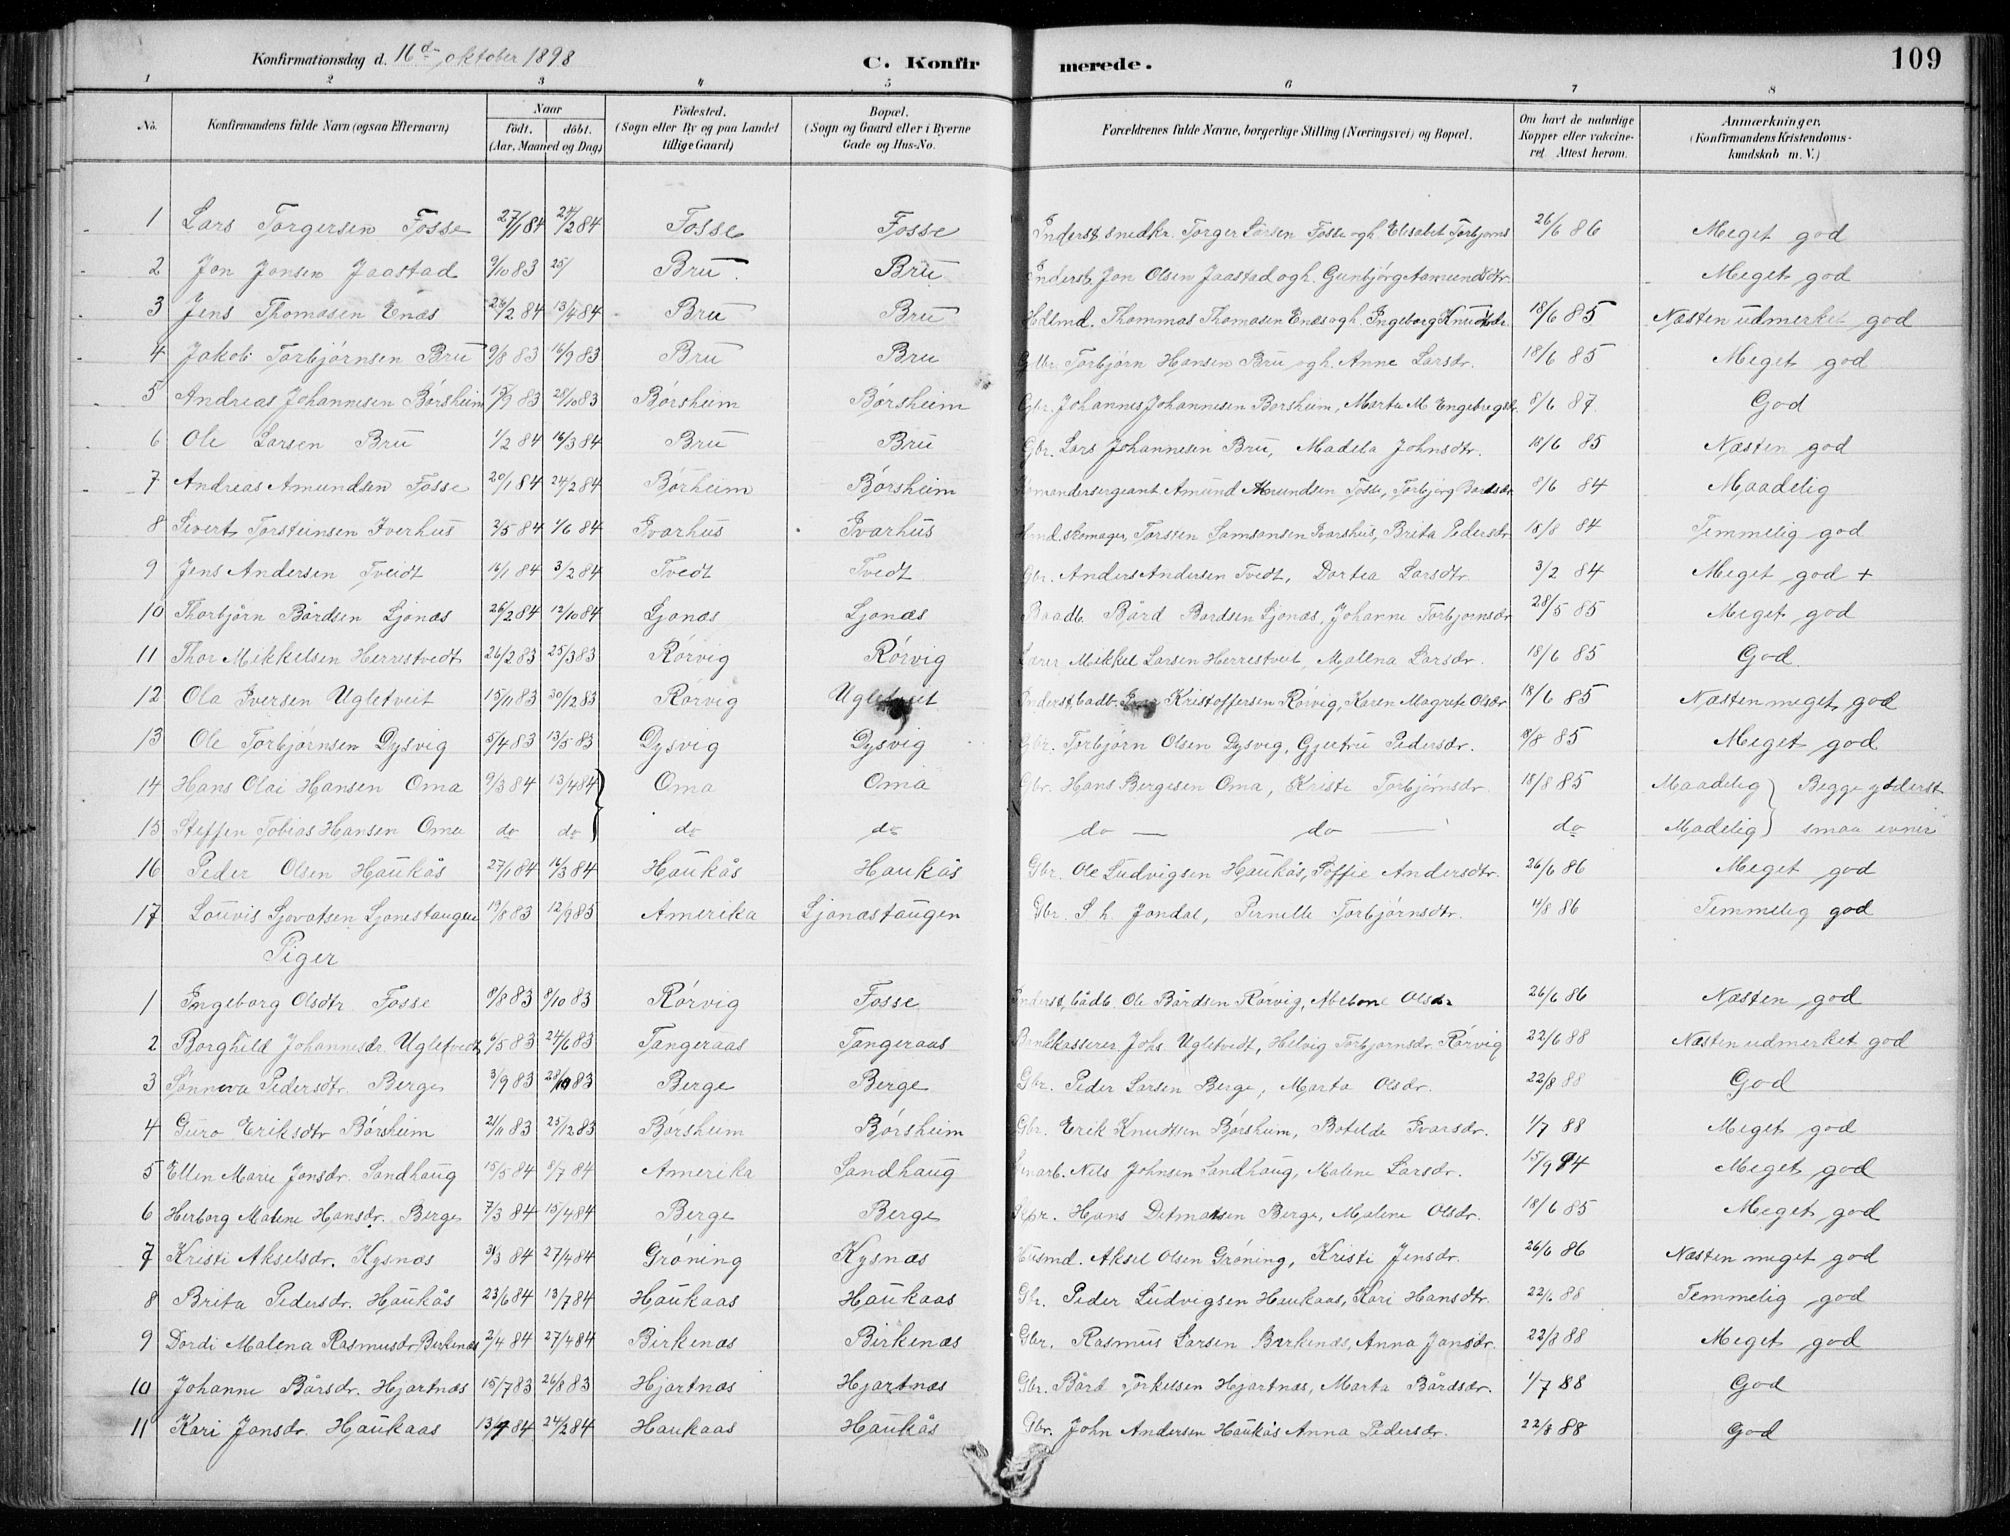 Konfirmationsdag d. 16de oktober 1898 C. Konfir merede. 109
1 2 3 4 5 6 7 8
No. Konfirmandens fulde Navn (ogsaa Efternavn) Naar födt. döbt. (Aar, Maaned og Dag) Födested. (Sogn eller By og paa Landet tillige Gaard) Bopæl. (Sogn og Gaard eller i Byerne Gade og Hus-No. Forældrenes fulde Navne, borgerlige Stilling (Næringsvei) og Bopæl. Om havt de naturlige Kopper eller vakcineret. Attest herom. Anmærkninger. (Konfirmandens Kristendomskundskab m. V.)
1 Lars Torgersen Fosse 27/1 84 24/2 84 Fosse Fosse Inderst, snedkr. Torger Larsen Fosse og h. Elisabet Torbjørns 26/6 86 Meget god
2 Jon Jonsen Jaastad 9/10 83 25/ Bru Bru Inderst, Jon Olsen Jaastad og h. Gunbjørg Aamundsdtr. Meget god
3 Jens Thomasen Enæs 23/2 84 13/4 84 Bru Bru Thommas Thomasen Enæs og h. Ingeborg Knudsdr 18/6 85 Næsten udmerket god
4 Jakob Torbjørnsen Bru 9/8 83 16/9 83 Bru Bru Gbr. Torbjørn Hansen Bru og h. Anne Larsdr. 18/6 85 Meget god
5 Andreas Johannesen Børsheim 15/9 83 28/10 83 Børsheim Børsheim Gbr. Johannes Johannesen Borsheim, Marta M Engebregtsdr. 8/6 87 God
6 Ole Larsen Bru 1/2 84 16/3 84 Bru Bru Gbr. Lars Johannesen Bru, Madela Johnsdtr. 18/6 85 Næsten god
7 Andreas Amundsen Fosse 20/1 84 24/2 84 Børheim Børsheim Komandersergeant Amund Amundsen Fosse, Torbjørg Bardsdr 8/6 84 Maadelig
8 Sivert Torsteinsen Iverhus 2/5 84 1/6 84 Ivarhus Ivarhus Hmd. skomager, Torsten Samsonsen Ivarshus, Brita Pedersdr 18/8 84 Temmelig god
9 Jens Andersen Tveidt 16/1 84 3/2 84 Tvedt Tvedt Gbr. Anders Andersen Tvedt, Dortea Larsdtr. 3/2 84 Meget god +
10 Thorbjørn Bårdsen Ljonæs 26/2 84 12/10 84 Ljonæs Ljonæs Baadb. Bård Bardsen Ljonæs, Johanne Torbjørnsdr 28/5 85 Meget god
11 Thor Mikkelsen Herrestvedt 26/2 83 25/3 83 Rørvig Rørvig Lærer Mikkel Larsen Herrestveit, Malena Larsdr. 18/6 85 God.
12 Ola Iversen Ugletveit 15/11 83 30/12 83 Rørvig Ugletveit Inderst, badb. Iver Kristoffersen Rørvig, Karen Magrete Olsdr 18/6 85 Næsten meget god
13 Ole Torbjørnsen Dysvig 5/4 83 13/5 83 Dysvig Dysvig Gbr. Torbjørn Olsen Dysvig, Gjertru Pedersdr. 9/8 85 Meget god
14 Hans Olai Hansen Oma 9/3 84 13/4 84 Oma Oma Gbr. Hans Bergesen Oma, Kristi Torbjørnsdr. 18/8 85 Maadelig Begge yderst
15 Steffen Tobias Hansen Oma do do do do do — do — do Madelig smaa evner
16 Peder Olsen Haukås 27/1 84 16/3 84 Haukås Haukås Gbr. Ole Ludvigsen Haukås, Soffie Andersdtr. 26/6 86 Meget god
17 Louvis Sjovatsen Ljonestangen 19/8 83 12/9 83 Amerika Ljonæstangen Gbr. S. h. Jondal, Pernille Torbjørnsdtr. 4/8 86 Temmelig god
Piger
1 Ingeborg Olsdtr Fosse 8/8 83 8/10 83 Rørvig Fosse Inderst, bådb. Ole Bårdsen Rørvig, Abelone Olsdr 26/6 86 Næsten god
2 Borghild Johannesdr. Ugletvedt 6/5 83 24/6 83 Tangeraas Tangeraas Bankkasserer Johs. Ugletvedt, Helvig Torbjørnsdr. Rørvig 22/6 88 Næsten udmerket god
3 Sønneva Pedersdtr. Berge 3/9 83 28/10 83 Berge Berge Gbr. Peder Larsen Berge, Marta Olsdr. 22/8 88 God
4 Guro Eriksdtr Børsheim 21/11 83 25/12 83 Børsheim Børsheim Gbr. Erik Knudtsen Børsheim, Botilde Ivarsdr. 1/7 88 Meget god
5 Ellen Marie Jonsdr. Sandhaug 15/5 84 8/7 84 Amerika Sandhaug Nils Johnsen Sandhaug, Malene Larsdr. 15/9 94 Meget god
6 Herborg Malene Hansdr. Berge 7/3 84 15/4 84 Berge Berge Hans Detmatsen Berge, Malene Olsdr. 18/6 85 Meget god
7 Kristi Akselsdr. Kysnæs 31/3 84 27/4 84 Grøning Kysnæs Husmd. Aksel Olsen Grøning, Kristi Jensdr. 26/6 86 Næsten meget god
8 Brita Pedersdr. Haukås 23/6 84 13/7 84 Haukaas Haukaas Gbr. Peder Ludvigsen Haukaas, Kari Hansdtr. 22/6 88 Temmelig god
9 Dordi Malena Rasmusdr. Birkenæs 2/4 84 27/4 84 Birkenæs Birkenæs Gbr. Rasmus Larsen Berkenæs, Anna Jansdr. 22/8 88 Meget god
10 Johanne Bårsdr. Hjartnæs 15/7 83 26/8 83 Hjartnæs Hjartnæs Gbr. Bård Torkelsen Hjartnæs, Marta Bårdsdr. 1/7 88 God
11 Kari Jonsdr. Haukaas 13/1 84 24/2 84 Haukaas Haukås Gbr. John Andersen Haukås Anna Pedersdr. 22/8 88 God